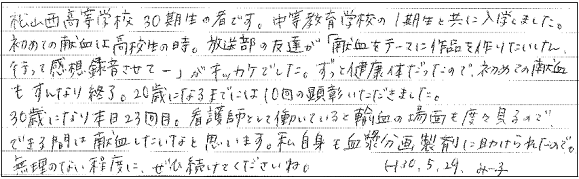 松山西高等学校 30期生の者です。中等教育学校の1期生と共に入学しました。
初めての献血は高校生の時。放送部の友達が「献血をテーマに作品を作りたいしん、
行って感想録音させてー」がキッカケでした。ずっと健康体だったので、初めての献血
もすんなり終了。20歳になるまでには10回の顕彰いただきました。
30歳になり本日23回目。看護師として働いていると輸血の場面を度々見るので、
できる間は献血したいなと思います。私自身も血漿分画製剤に助けられたので。
無理のない程度に、ぜひ続けてくださいね。 H30.5.29. み-子